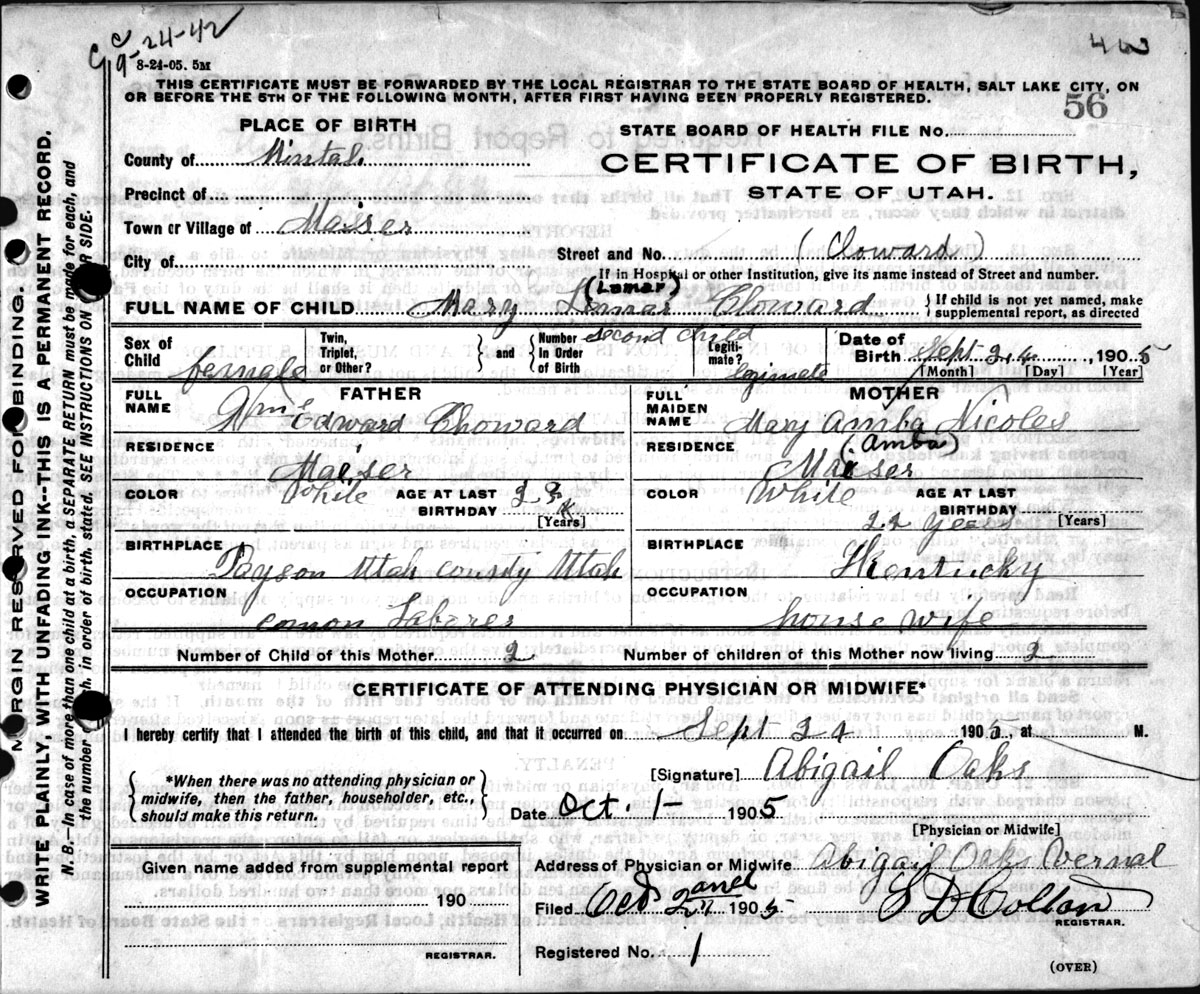 9-24-42
42
8-24-05. 5M
THIS CERTIFICATE MUST BE FORWARDED BY THE LOCAL REGISTRAR TO THE STATE BOARD OF HEALTH, SALT LAKE CITY, ON
OR BEFORE THE 5TH OF THE FOLLOWING MONTH, AFTER FIRST HAVING BEEN PROPERLY REGISTERED.
56
PLACE OF BIRTH
STATE BOARD OF HEALTH FILE No.
County of
CERTIFICATE OF BIRTH,
Precinct of
STATE OF UTAH.
Town or Village of Maeser
Street and No. (Cloward)
City of
If in Hospital or other Institution, give its name instead of Street and number.
(Lamar)
FULL NAME OF CHILD Mary Lemar Cloward
If child is not yet named, make supplemental report, as directed
Sex of Child female
Twin, Triplet, or Other?
and
Number In Order of Birth second child
Legitimate? legimate
Date of Birth Sept 24, 1905
[Month] [Day] [Year]
FATHER
MOTHER
FULL NAME Wm Edward Choward
FULL MAIDEN NAME Mary Amba Nicoles
(Amba)
RESIDENCE Maeser
RESIDENCE Maeser
COLOR White AGE AT LAST BIRTHDAY [Years]
COLOR White AGE AT LAST BIRTHDAY 22 years [Years]
BIRTHPLACE Payson Utah County Utah
BIRTHPLACE Kentucky
OCCUPATION comon Laborer
OCCUPATION house wife
Number of Child of this Mother 2
Number of children of this Mother now living 2
CERTIFICATE OF ATTENDING PHYSICIAN OR MIDWIFE*
I hereby certify that I attended the birth of this child, and that it occurred on Sept 24 1905, at M.
*When there was no attending physician or midwife, then the father, householder, etc., should make this return.
[Signature] Abigail Oaks
Date Oct. 1- 1905
[Physician or Midwife]
Given name added from supplemental report
190
REGISTRAR.
Address of Physician or Midwife Abigail Oaks Vernal
Filed Oct 2nd 1905
S D Colton
REGISTRAR.
Registered No. 1
(OVER)
MARGIN RESERVED FOR BINDING.
WRITE PLAINLY, WITH UNFADING INK--THIS IS A PERMANENT RECORD.
N. B.—In case of more than one child at a birth, a SEPARATE RETURN must be made for each, and
the number of each, in order of birth, stated. SEE INSTRUCTIONS ON OTHER SIDE.